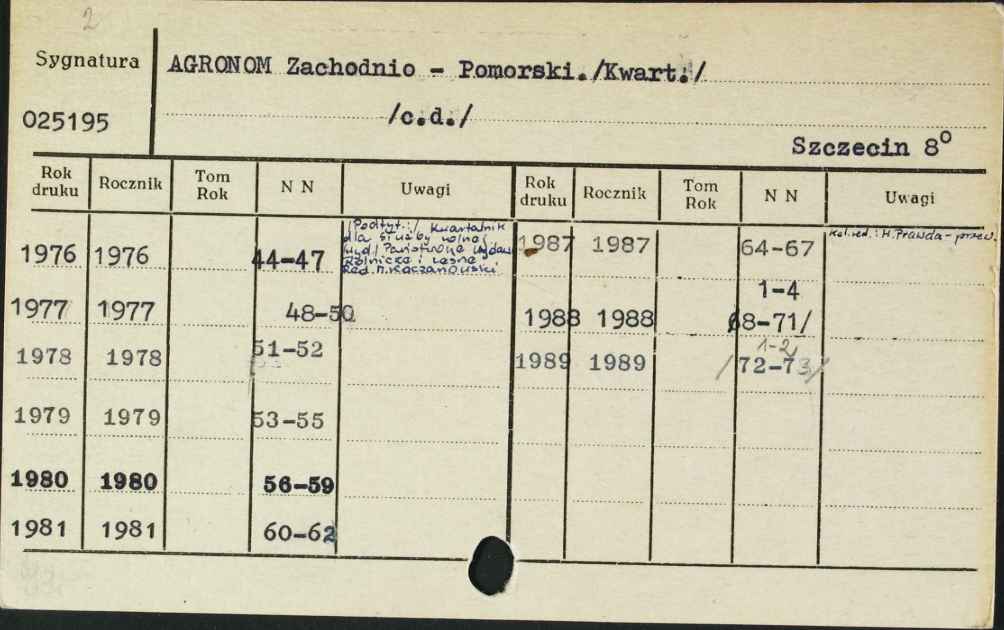 2
Sygnatura
AGRONOM Zachodnio - Pomorski./Kwart./
025195
/c.d./
Szczecin 8°
Rok druku Rocznik Tom Rok N N Uwagi Rok druku Rocznik Tom Rok N N Uwagi
1976 1976 44-47
/Podtyt.:/ Kwartalnik
dla służby rolnej
Wyd. Państwowe Wydaw.
Rolnicze i Leśne
Red. Kaczanowski
1977 1977 48-50
1978 1978 51-52
1979 1979 53-55
1980 1980 56-59
1981 1981 60-62
1987 1987 64-67 Kol.red.: H.Prawda-przew.
1-4
1988 1988 68-71/
1-2
1989 1989 /72-73/